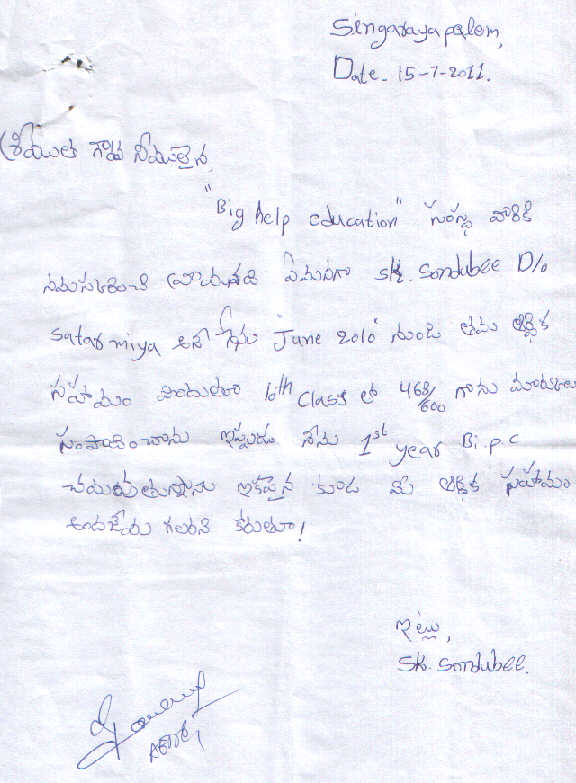 Singarayapalem,
Date. 15-7-2011.
శ్రీయుత గౌరవనీయులైన,
"Big help education" సంస్థ వారికి
నమస్కరించి వ్రాయునది ఏమనగా sk. Sondubee D/o
Satar miya అనే నేను June 2010 నుండి తమ ఆర్ధిక
సహాయం పొందుతూ 10th Class లో 468/600 గాను మార్కులు
సంపాదించాను ఇప్పుడు నేను 1st year Bi.p.c
చదువుతున్నాను ఇకపైన కూడ మీ ఆర్ధిక సహాయం
అందజేయ గలరని కోరుతూ!
ఇట్లు,
SK. Sondubee.